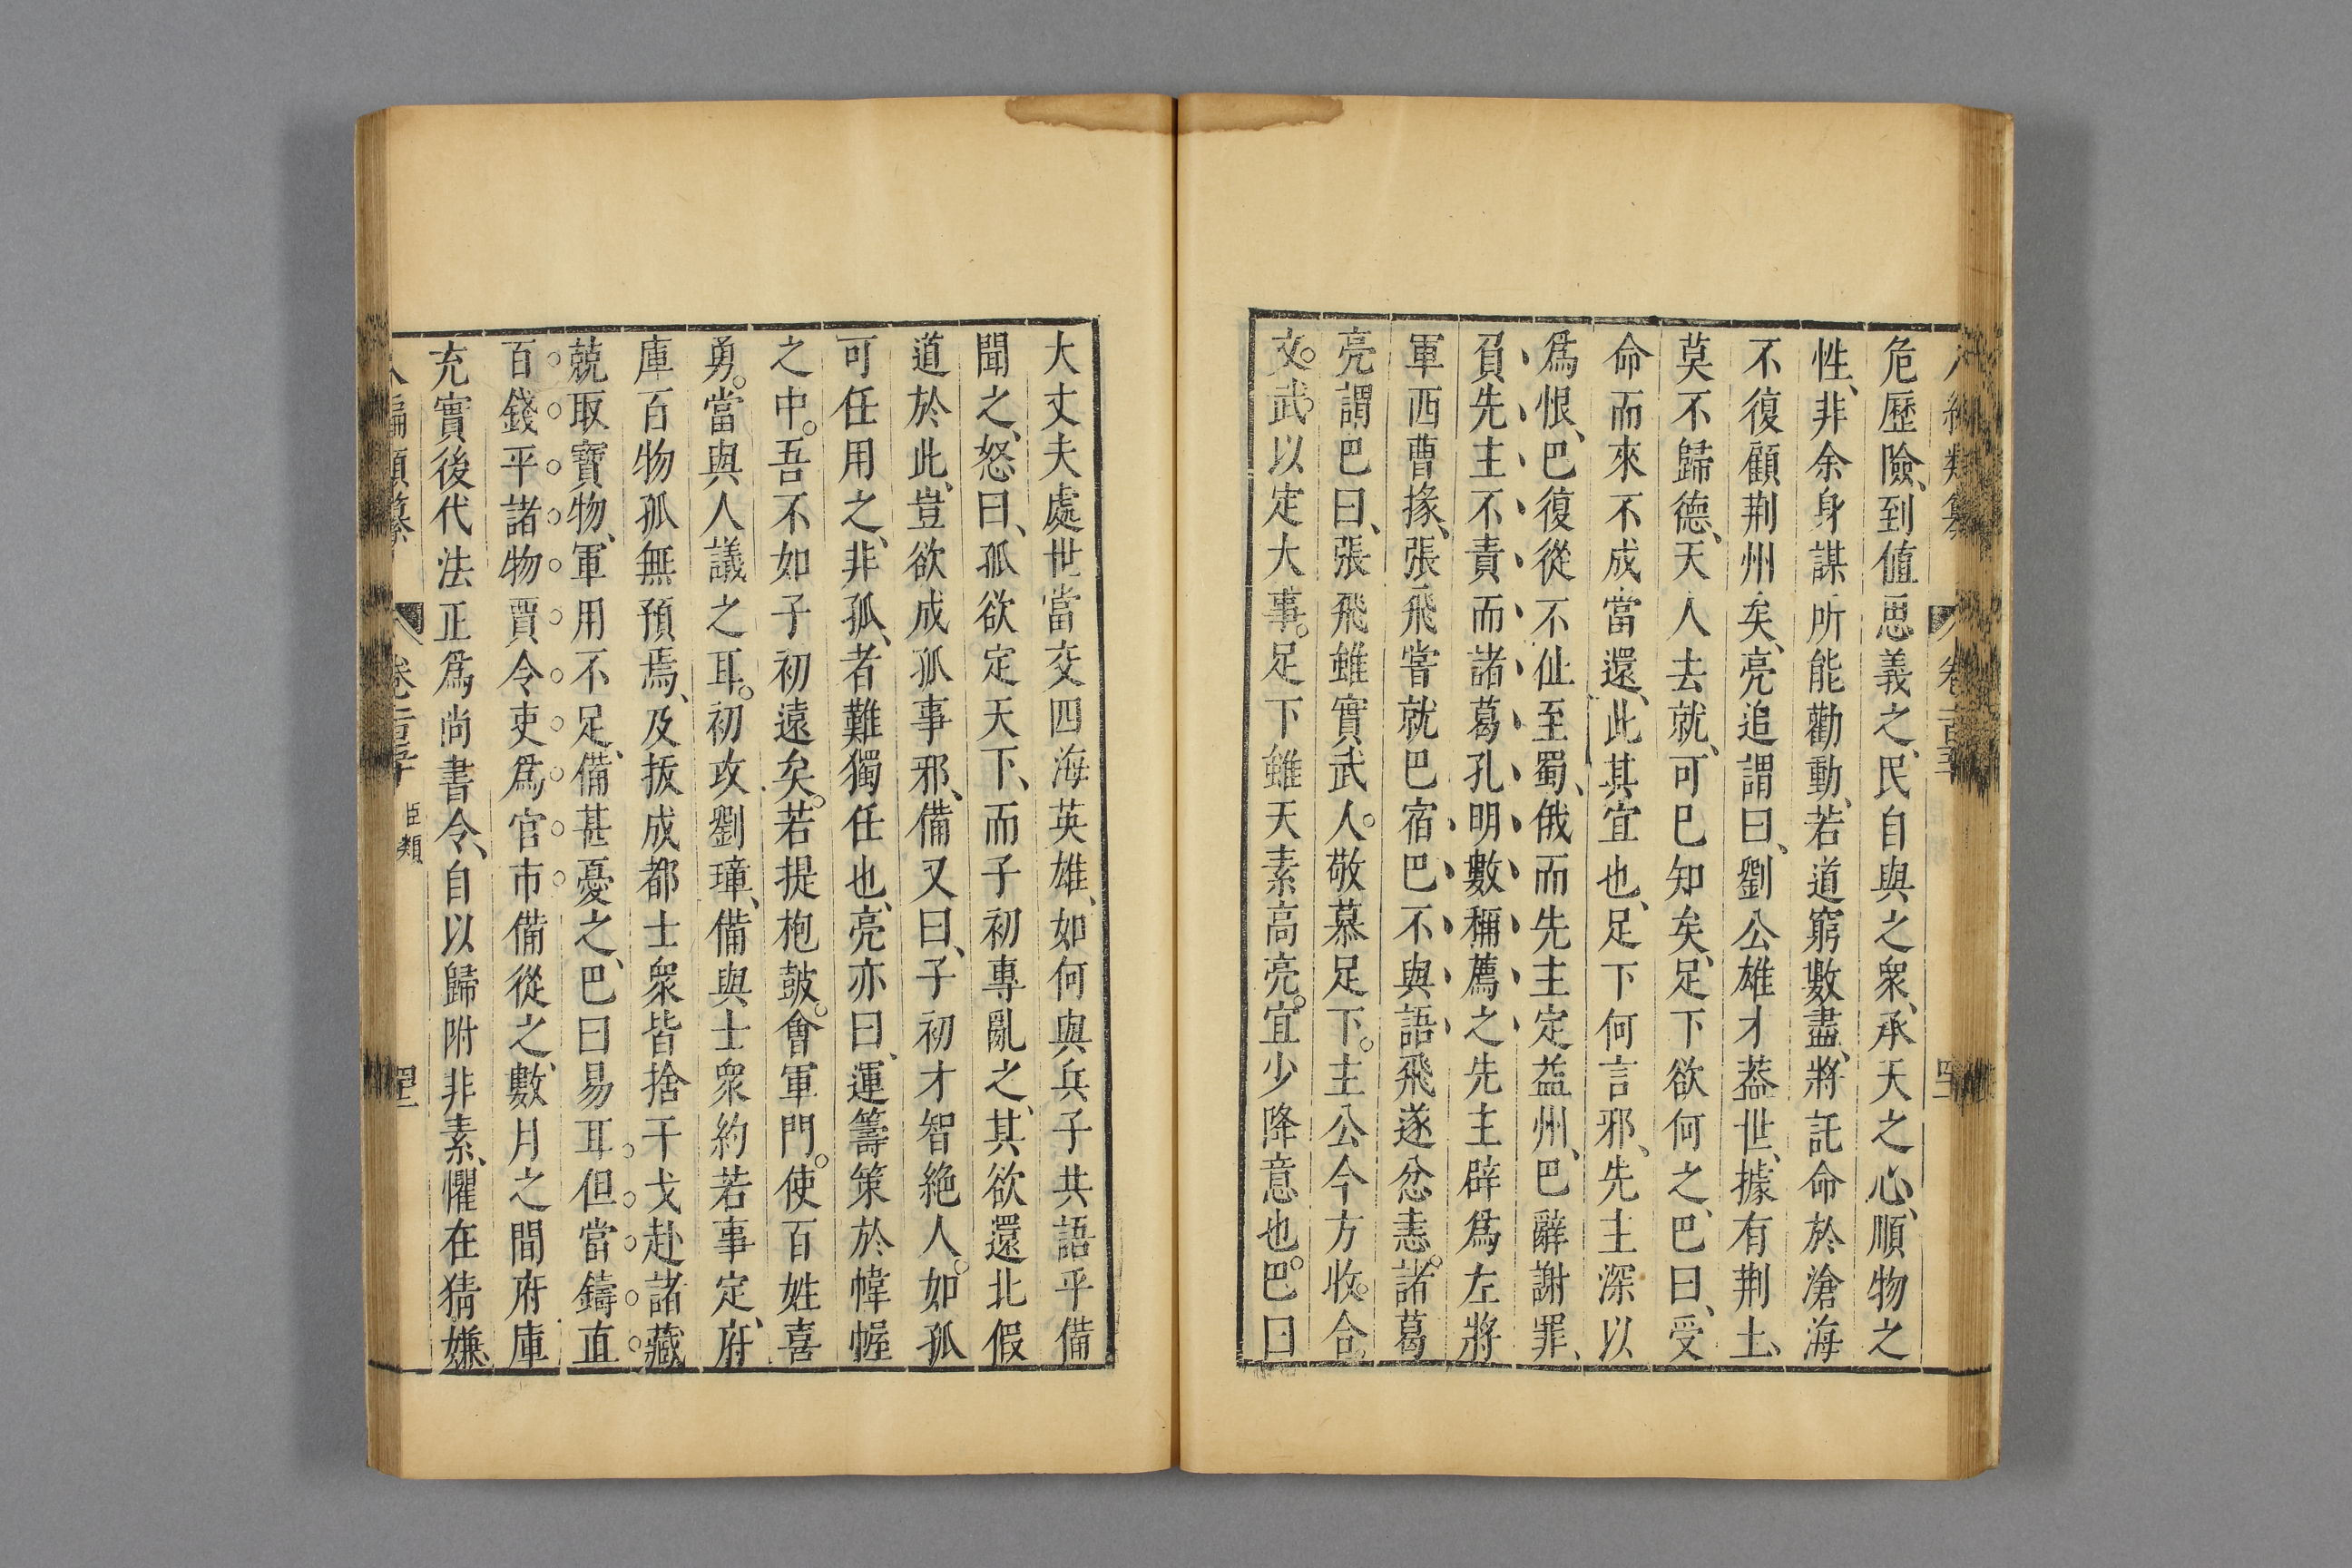 危歷險、到值思義之、民自與之衆、承天之心、順物之
性、非余身謀所能勸動、若道窮數盡、將託命於滄海
不復顧荆州矣、亮追謂曰、劉公雄才葢世、據有荆土、
莫不歸德、天人去就、可巳知矣、足下欲何之、巴曰、受
命而來不成當還、此其宜也、足下何言邪、先主深以
爲恨、巴復從不仙至蜀、俄而先主定益州、巴辭謝罪、
負先主不責而諸葛孔明數稱薦之先主辟爲左將
軍西曹掾、張飛嘗就巴宿巴不與語飛遂忿恚。諸葛
亮謂巴曰、張飛雖實武人。敬慕足下。主公今方收。合
文。武。以定大事。足下雖天素高亮。宜少降意也。巴曰
大丈夫處世當交四海英雄、如何與兵子共語乎備
聞之、怒曰、孤欲定天下、而子初專亂之、其欲還北假
道於此、豈欲成孤事邪、備又曰、子初才智絶人。如孤
可任用之、非孤、者難獨任也、亮亦曰、運籌策於幃幄
之中。吾不如子初遠矣。若提枹鼓。會軍門。使百姓喜
勇。當與人議之耳。初攻劉璋、備與士衆約若事定、府
庫百物孤無預焉、及拔成都士衆皆捨干戈赴諸藏
兢取寶物、軍用不足、備甚憂之、巴曰易耳但當鑄直
百錢平諸物賈令吏爲官市備從之、數月之間府庫
充實後代法正爲尚書令、自以歸附非素、懼在猜嫌、
編類纂 臣類